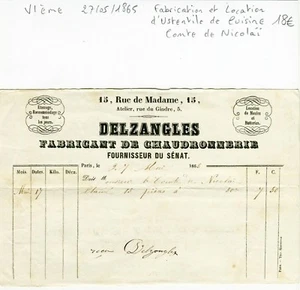 VIème 27/05/1865 Fabrication et Location
d'Ustensile de Cuisine 18€
Comte de Nicolaï
15, Rue de Madame, 15,
Atelier, rue du Gindre, 5.
Étamage,
Raccommodage
tous
les jours.
Location
de Moules
et
Batteries.
DELZANGLES
FABRICANT DE CHAUDRONNERIE
FOURNISSEUR DU SÉNAT.
Paris, le 27 Mai 186
Doit
Mois. Dates. Kilo. Déca. F. C.
Mai 17 15 pièces à 7 50
Delzangles